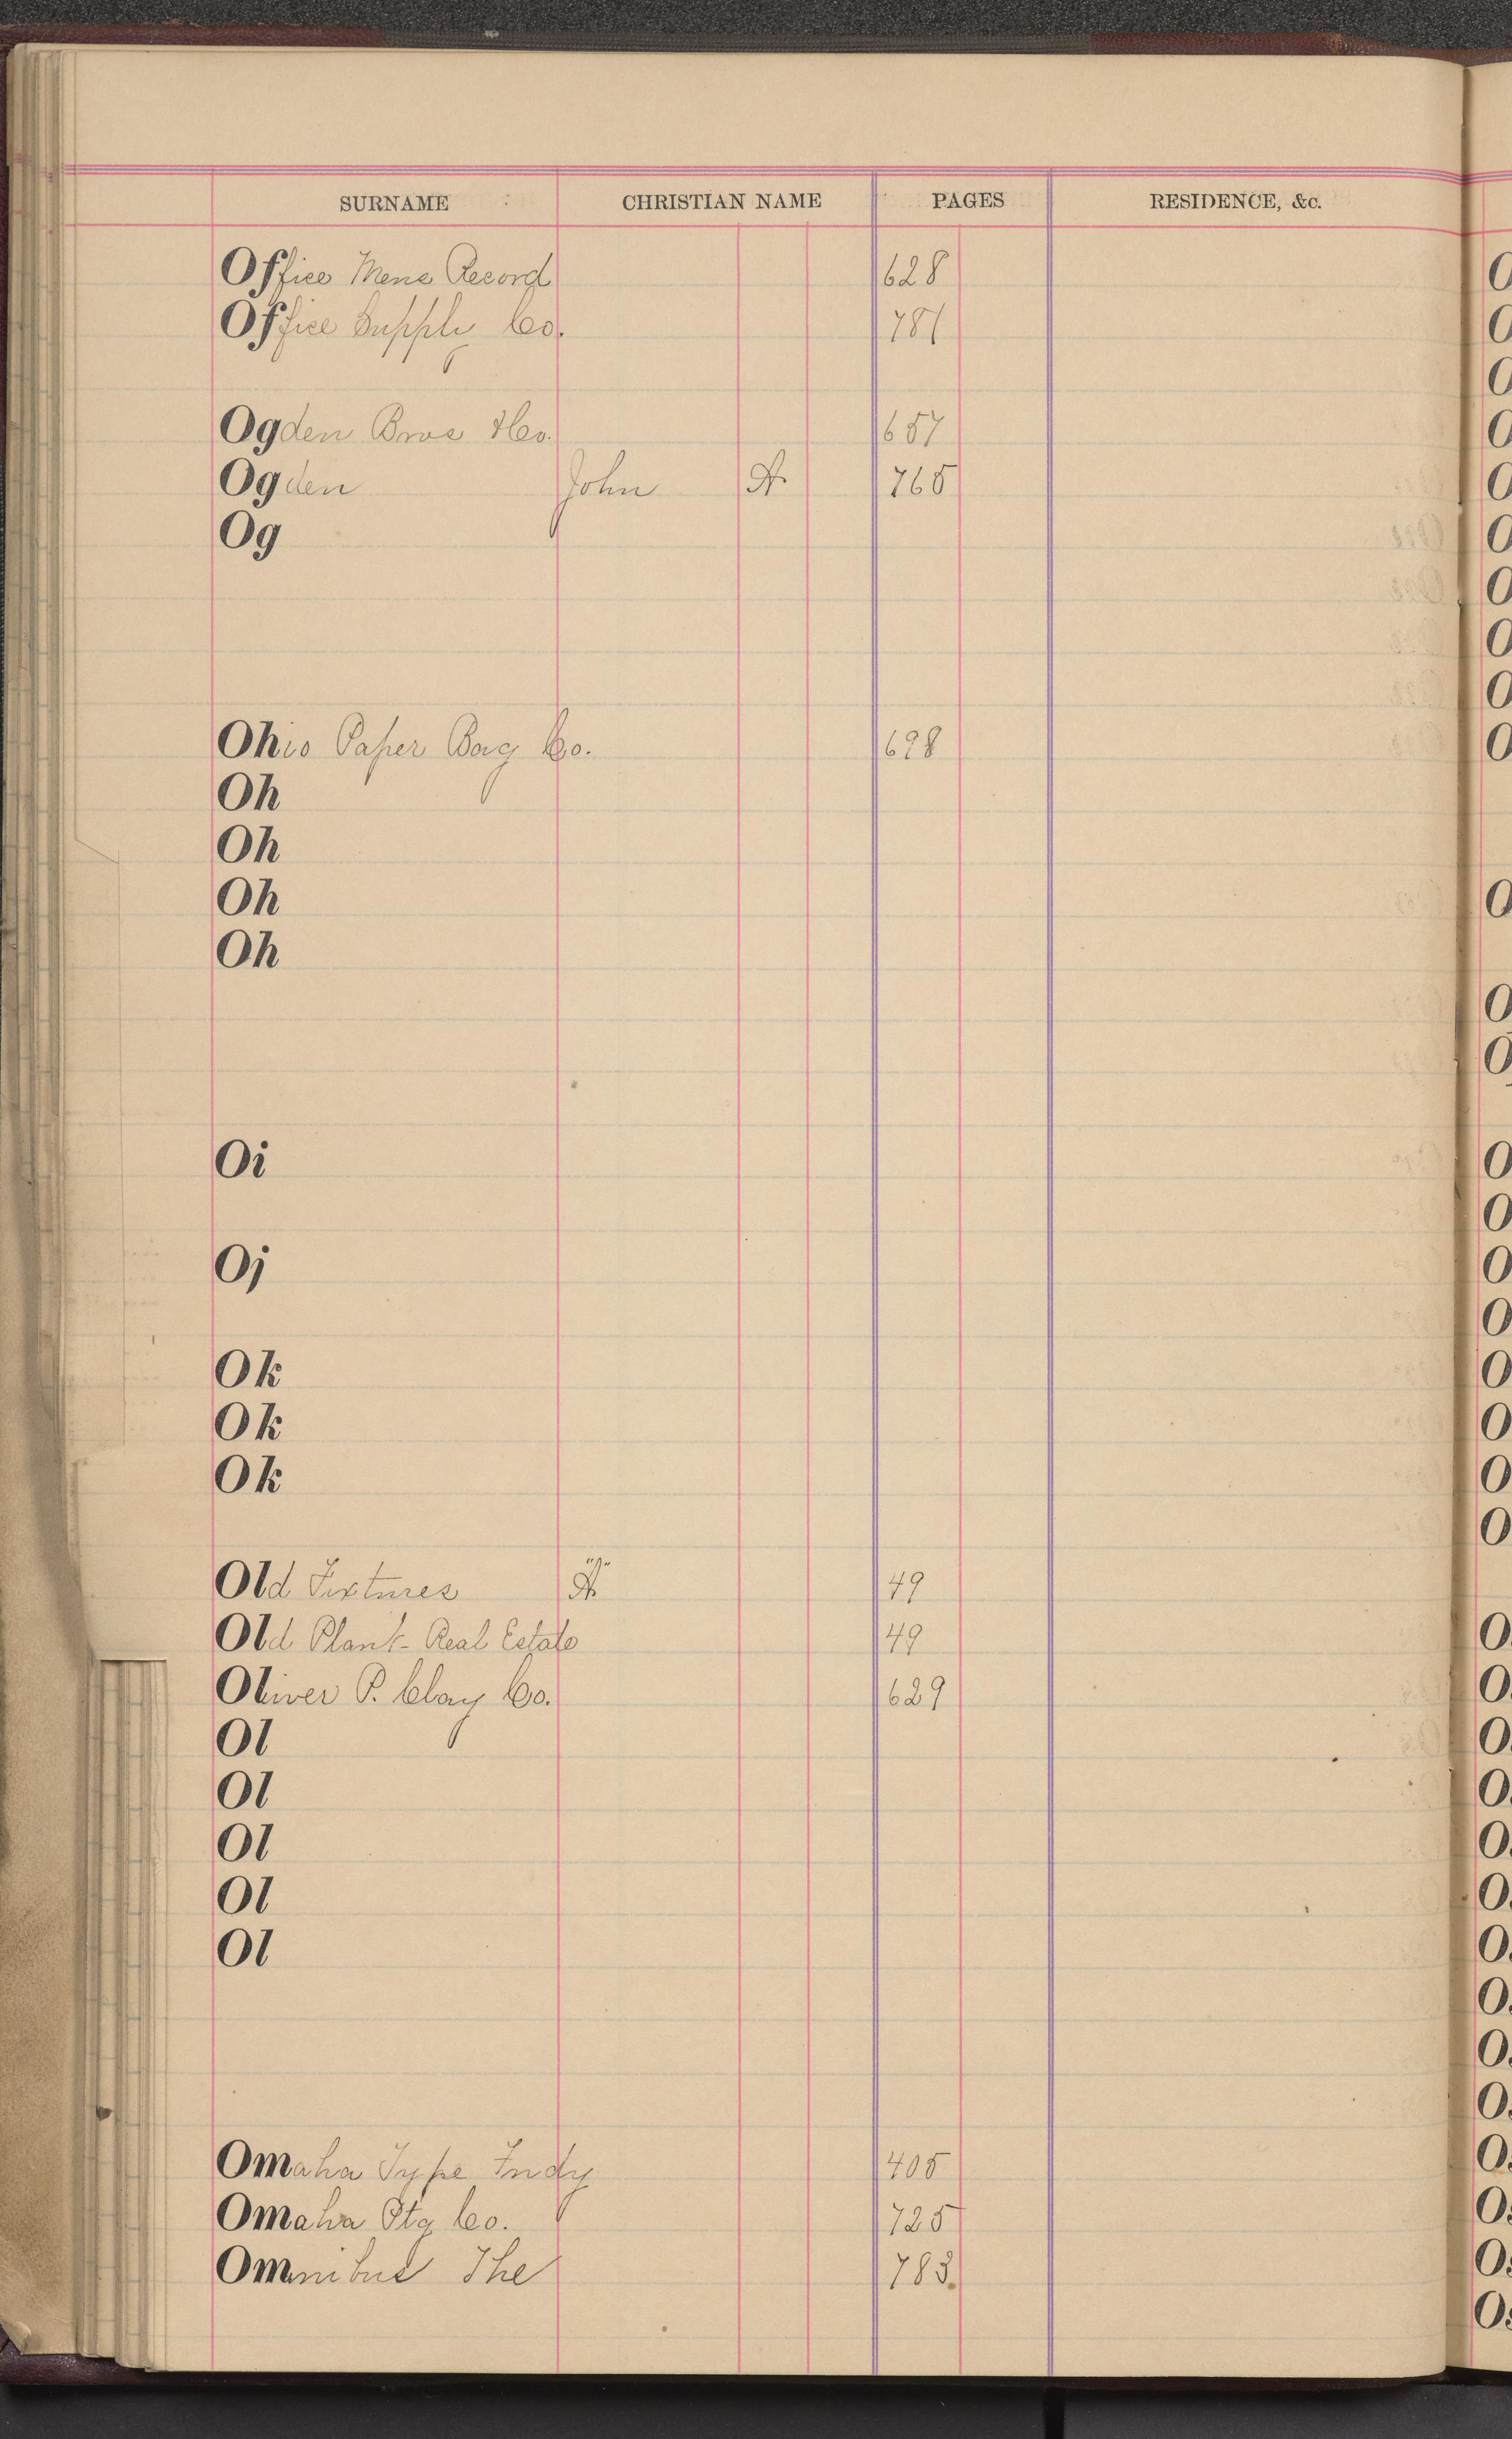 SURNAME CHRISTIAN NAME PAGES RESIDENCE, &c.
Office Mens Record 628
Office Supply Co. 781
Ogden Bros &Co. 657
Ogden John A. 765
Og
Ohio Paper Bag Co. 698
Oh
Oh
Oh
Oh
Oi
Oj
Ok
Ok
Ok
Old Fixtures "A" 49
Old Plant - Real Estate 49
Oliver P. Clay Co. 629
Ol
Ol
Ol
Ol
Ol
Omaha Type Fndy 405
Omaha Ptg Co. 725
Omnibus The 783